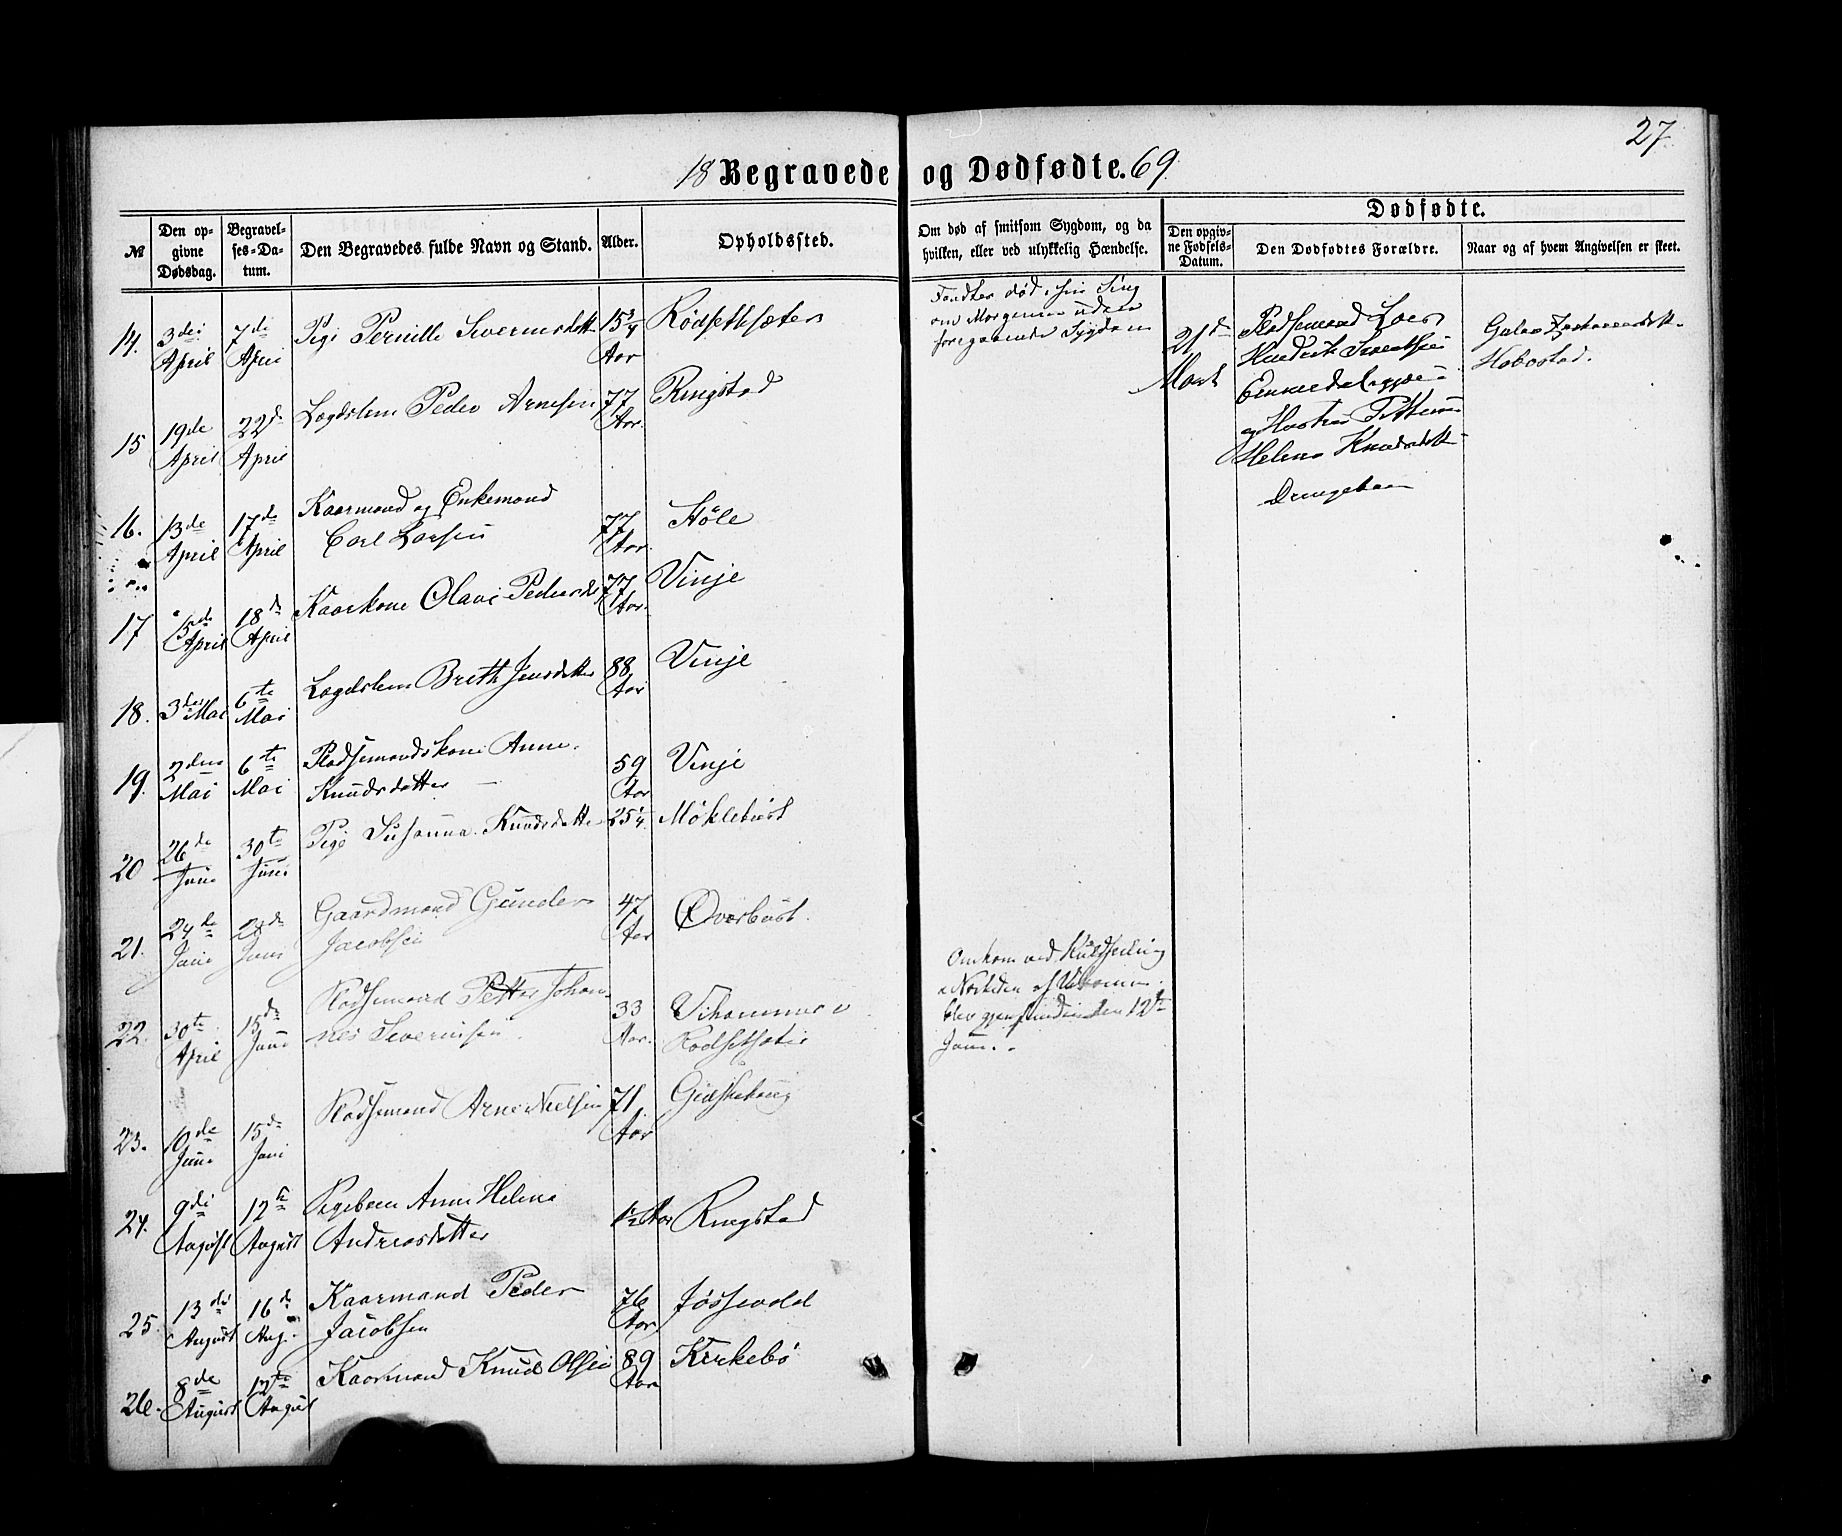 27
18 Begravede og Dødfødte. 69
№
Den opgivne Dødsdag.
Begravelses-Datum.
Den Begravedes fulde Navn og Stand.
Alder.
Opholdssted.
Om død af smitsom Sygdom, og da hvilken, eller ved ulykkelig Hændelse.
Dødfødte.
Den opgivne Fødsels-Datum.
Den Dødfødtes Forældre.
Naar og af hvem Angivelsen er skeet.
14. 3die April 7de April Pige Pernille Severinsdatt 15 3/4 Aar Rødsethsæter
Fandtes død i sin Seng
om Morgenen uden
foregaaende Sygdom
21de Marts
Pladsemand Lars
og Hustru
Helene Knudsdatt
Drengebarn
Hobostad.
15 19de April 22de April Lægdslem Peder Arnesen 77 Aar. Ringstad
16. 13de April 17de April Kaarmand og Enkemand
Carl Larsen 77 Aar. Høle
17 April 18de April Kaarkone Olave Pedersd 77 Aar. Vinje
18. 3die Mai 6te Mai Lægdslem Breth Jensdatter 88 Aar Vinje
19. 2den Mai 6te Mai Pladsemandskone Anne
Knudsdatter 59 Aar Vinje
20 26de June 30te Juni Pige Susanna Knudsdatte 25 1/4. Møklebust
21. 24de June Juni Gaardmand Gunder
Jacobsen 47 Aar Øverbust.
22. 30te April 15de June Pladsemand Petter Johan-
nes Severinsen. 33 Aar.
Rødsetsæter
Omkom ved Kuldseiling
blev gjenfunden den 12te
Juni.
23. 10de June 15de Juni Pladsemand Arne Nielsen 71. Aar Gidskehoug
24. 9de August 12te August Pigebarn Anne Helene
Andreasdatter 1 1/2 Aar Ringstad
25. 13de August 16de Aug. Kaarmand Peder
Jacobsen 76 Aar Jøssevold
26. 8de August 12te August Kaarmand Knud Olsen 89 Aar Kirkebø